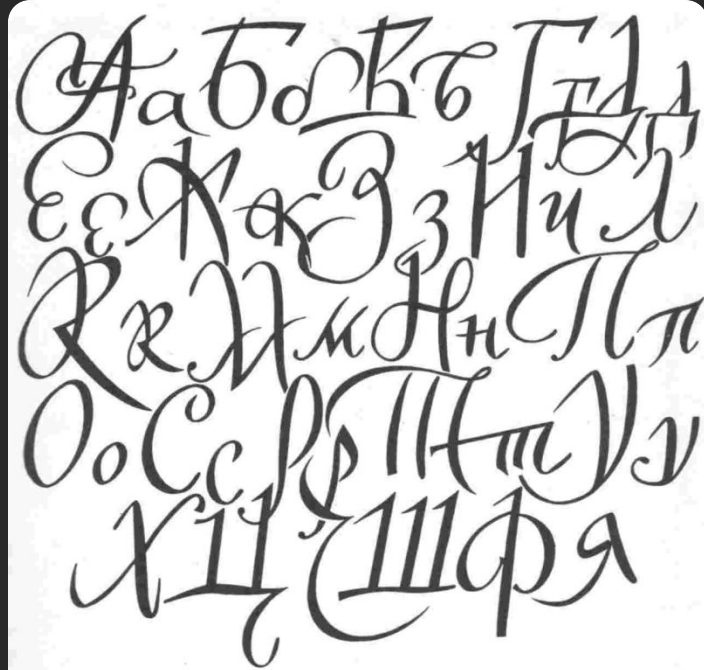 А а Б б В в Г г Д д
Е е Ж ж З з И и Л
К к М м Н н П п
О о С с Р р Т т У у
Х Ц Ш Ф Я